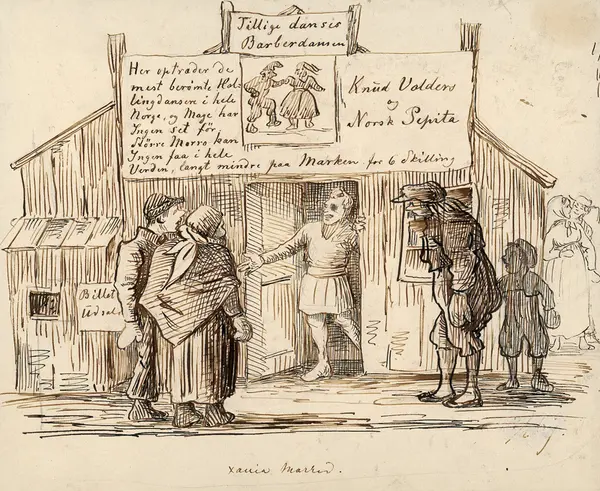 Tillige dansis
Barberdansen
Her optræder de
mest berømte Hal-
lingdansere i hele
Norge, og Mage har
Ingen set før
Större Morro kan
Ingen faa i hele
Verden, langt mindre paa Marken for 6 Skilling
Knud Volders
og
Norsk Pepita
Billet
Udsal
xania Marked.